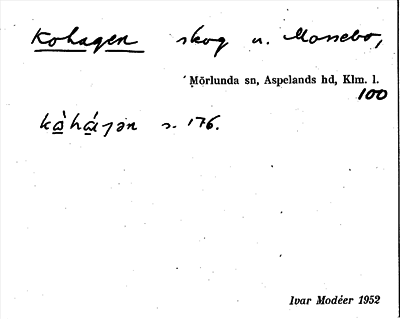 Kohagen skog u. Mossebo,
Mörlunda sn, Aspelands hd, Klm. l.
100
s. 176.
Ivar Modéer 1952